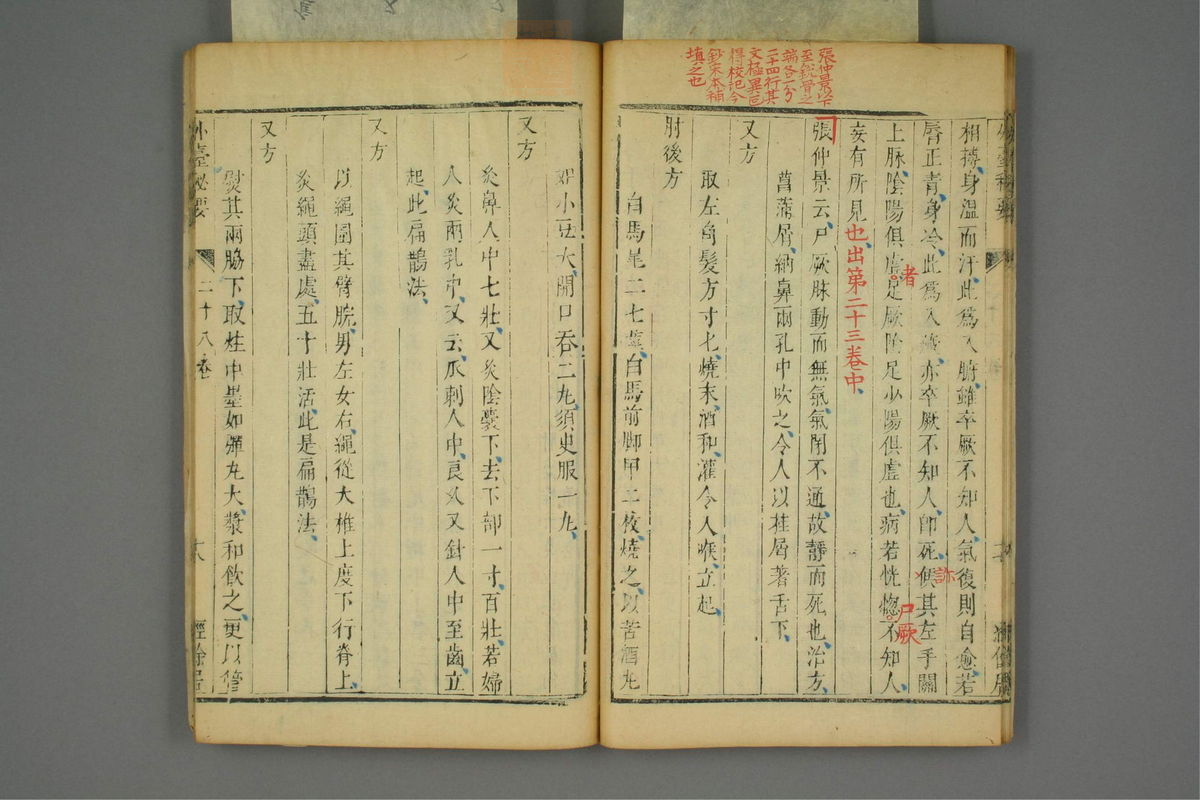 張仲景以下
至銳骨之
端各一分
二十四行其
文極異
得校記今
鈔宋本補
填之也
相搏身溫而汗此爲入腑雖卒厥不知人氣復則自愈若
脣正青身冷此爲入臟亦卒厥不知人卽死候其左手關
診
上脉陰陽俱虛足厥陰足少陽俱虛也病若恍惚不知人
者
尸厥
妄有所見也出第二十三卷中
張仲景云尸厥脉動而無氣氣閉不通故靜而死也治方
菖蒲屑納鼻兩孔中吹之令人以桂屑著舌下
又方
取左角髮方寸匕燒末酒和灌令人喉立起
肘後方
白馬尾二七莖白馬前脚甲二枚燒之以苦酒丸
如小豆大開口吞二丸須史服一丸
又方
灸鼻人中七壯又灸陰囊下去下部一寸百壯若婦
人灸兩乳中又云爪刺人中良久又針人中至齒立
起此扁鵲法
又方
以繩圍其臂腕男左女右繩從大椎上度下行脊上
灸繩頭盡處五十壯活此是扁鵲法
又方
熨其兩脇下取灶中墨如彈丸大漿和飲之更以管
外臺秘要
二十八卷
十八
經餘居